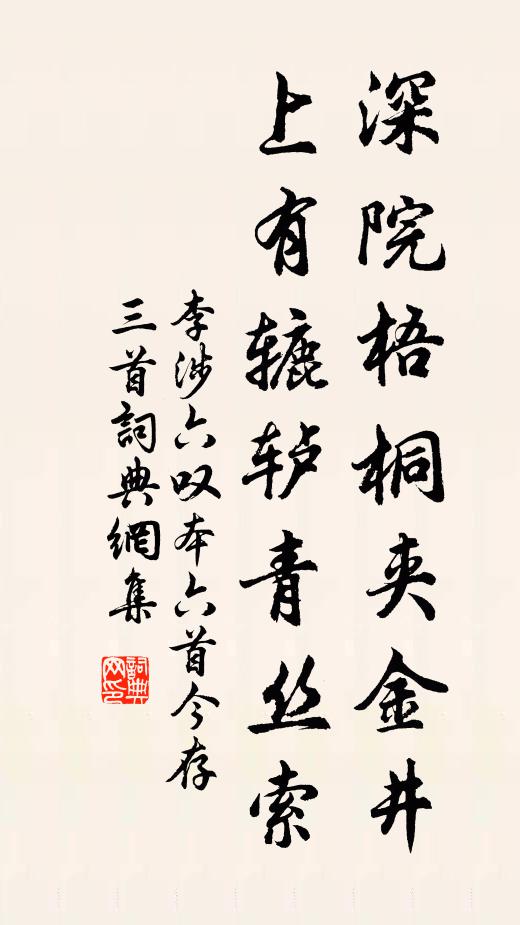 深院梧桐夹金井
上有辘轳青丝索
李涉六叹本六首今存
三首詞典網集
詞典网印